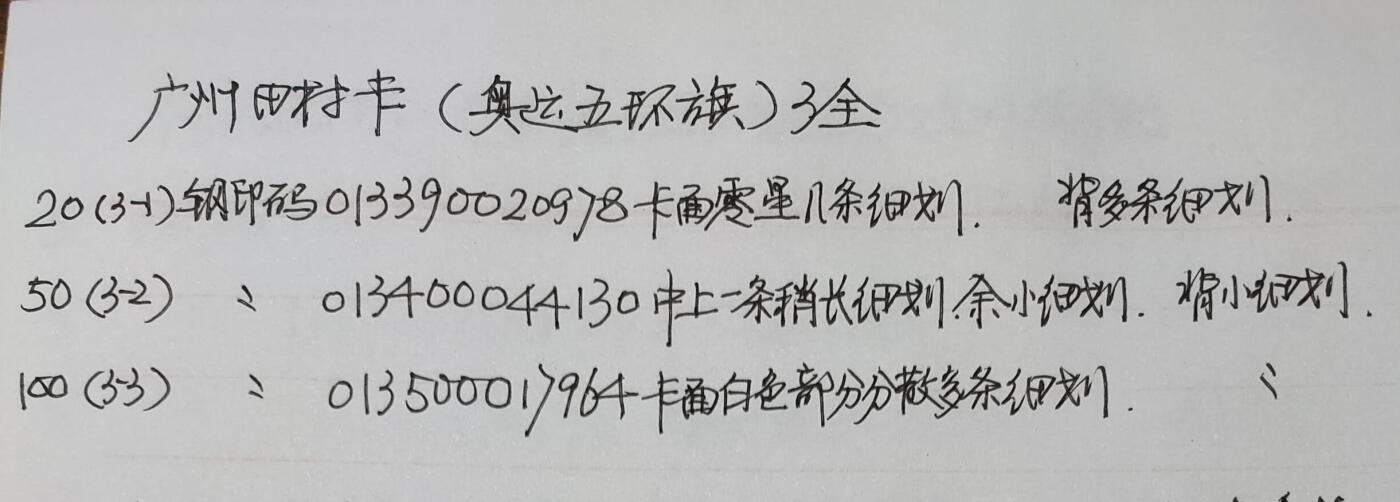 广州田村卡（奥运五环旗）3全
20(3-1)钢印码013390020978卡面零星几条细划. 背多条细划.
50(3-2) 〃 013400044130中上一条稍长细划.余小细划. 背小细划.
100(3-3) 〃 013500017964卡面白色部分分散多条细划. 〃